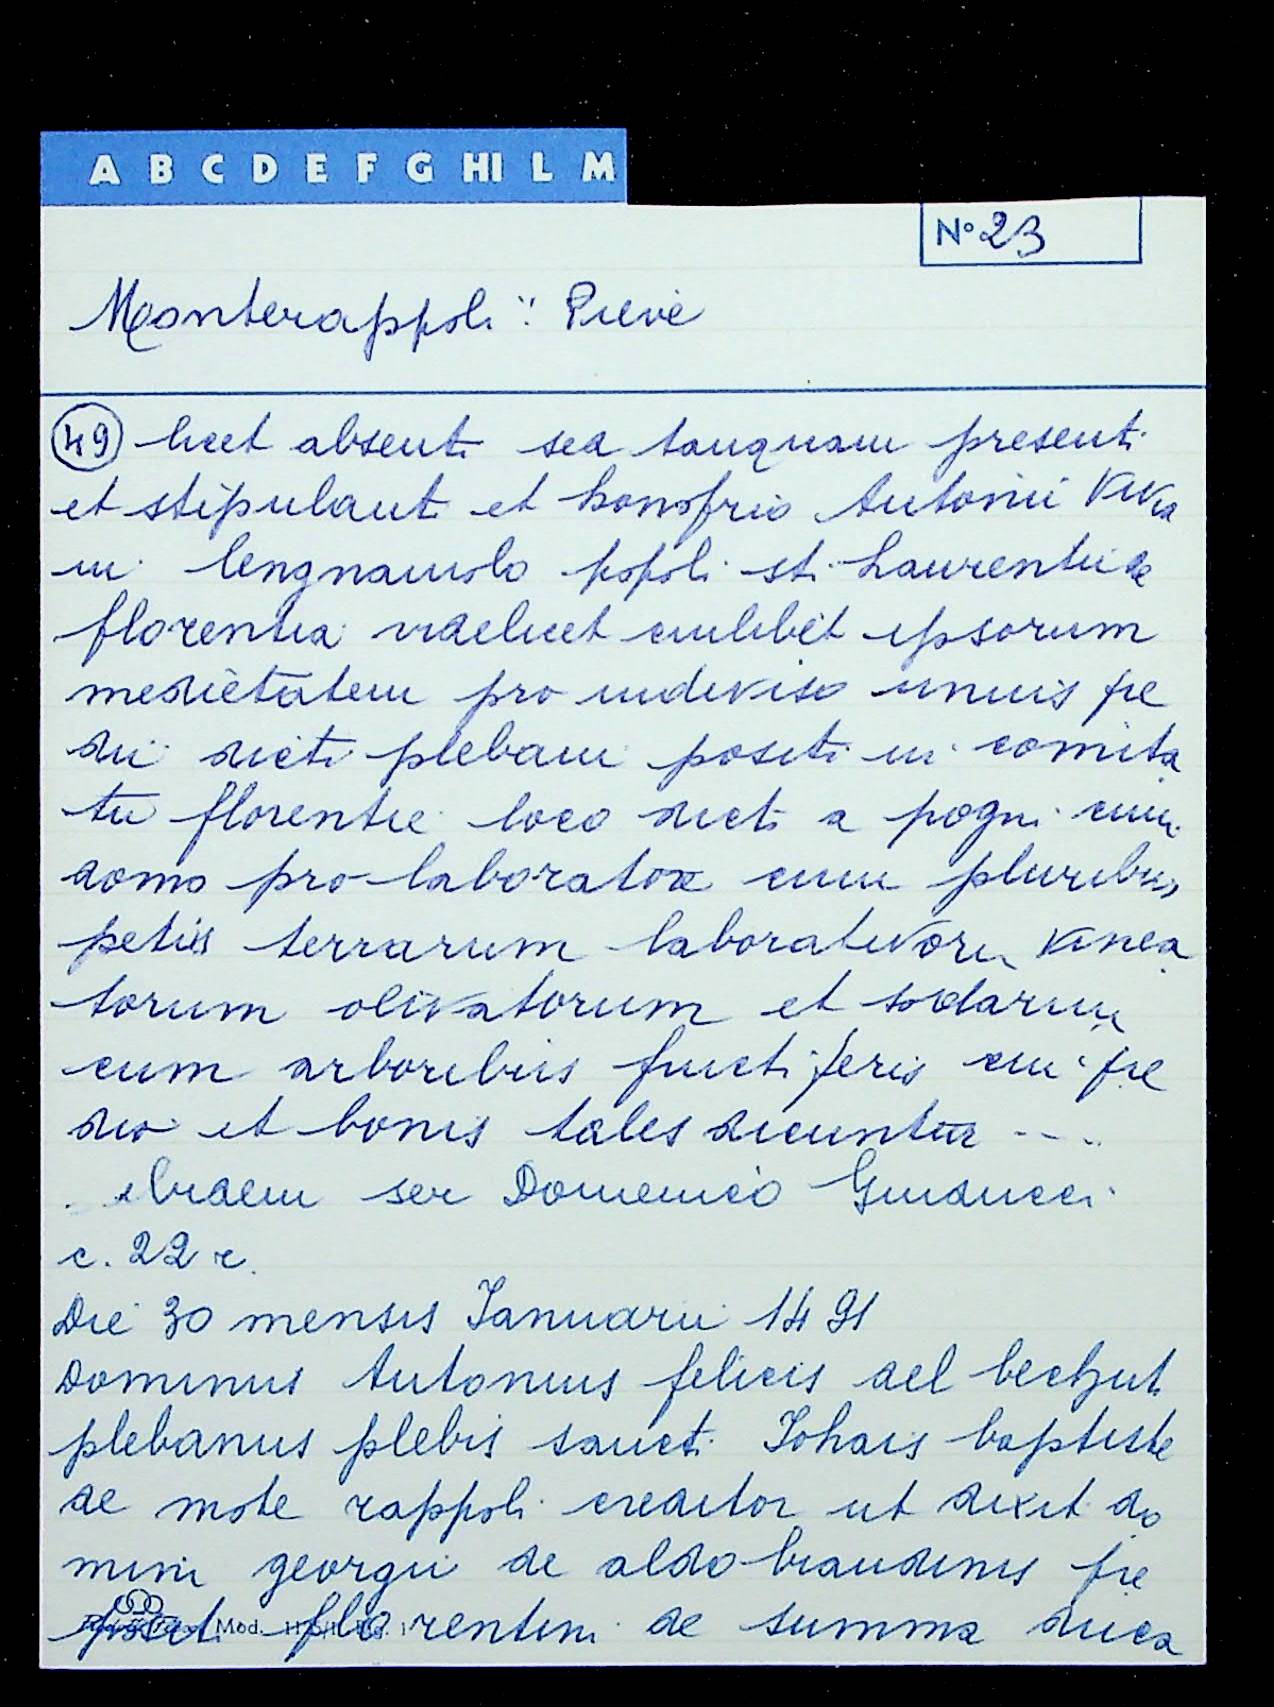 A B C D E F G HI L M
N° 23
Monterappoli: Pieve
49 licet absenti sed tanquam presenti
et stipulanti et honofrio Antonii Viva
ni lengnaiuolo popoli sti Laurentii de
florentia videlicet cuilibet ipsorum
medietatem pro indiviso unius pre
dii dicti plebani positi in comita
tu florentie loco dicti a pogni cum
domo pro laboratore cum pluribus
petiis terrarum laborativoru vinea
torum olivatorum et sodarum
cum arboribus fructiferis cui pre
dio et bonis tales dicuntur ....
ibidem ser Domenico Guiducci
c. 22 r.
Die 30 mensis Ianuarii 1491
Dominus Antonius felicis del bechut
plebanus plebis sancti Iohais baptiste
de mote rappoli creditor ut dixit do
mini georgii de aldobrandinis pre
positi florentini de summa duca
Mod.